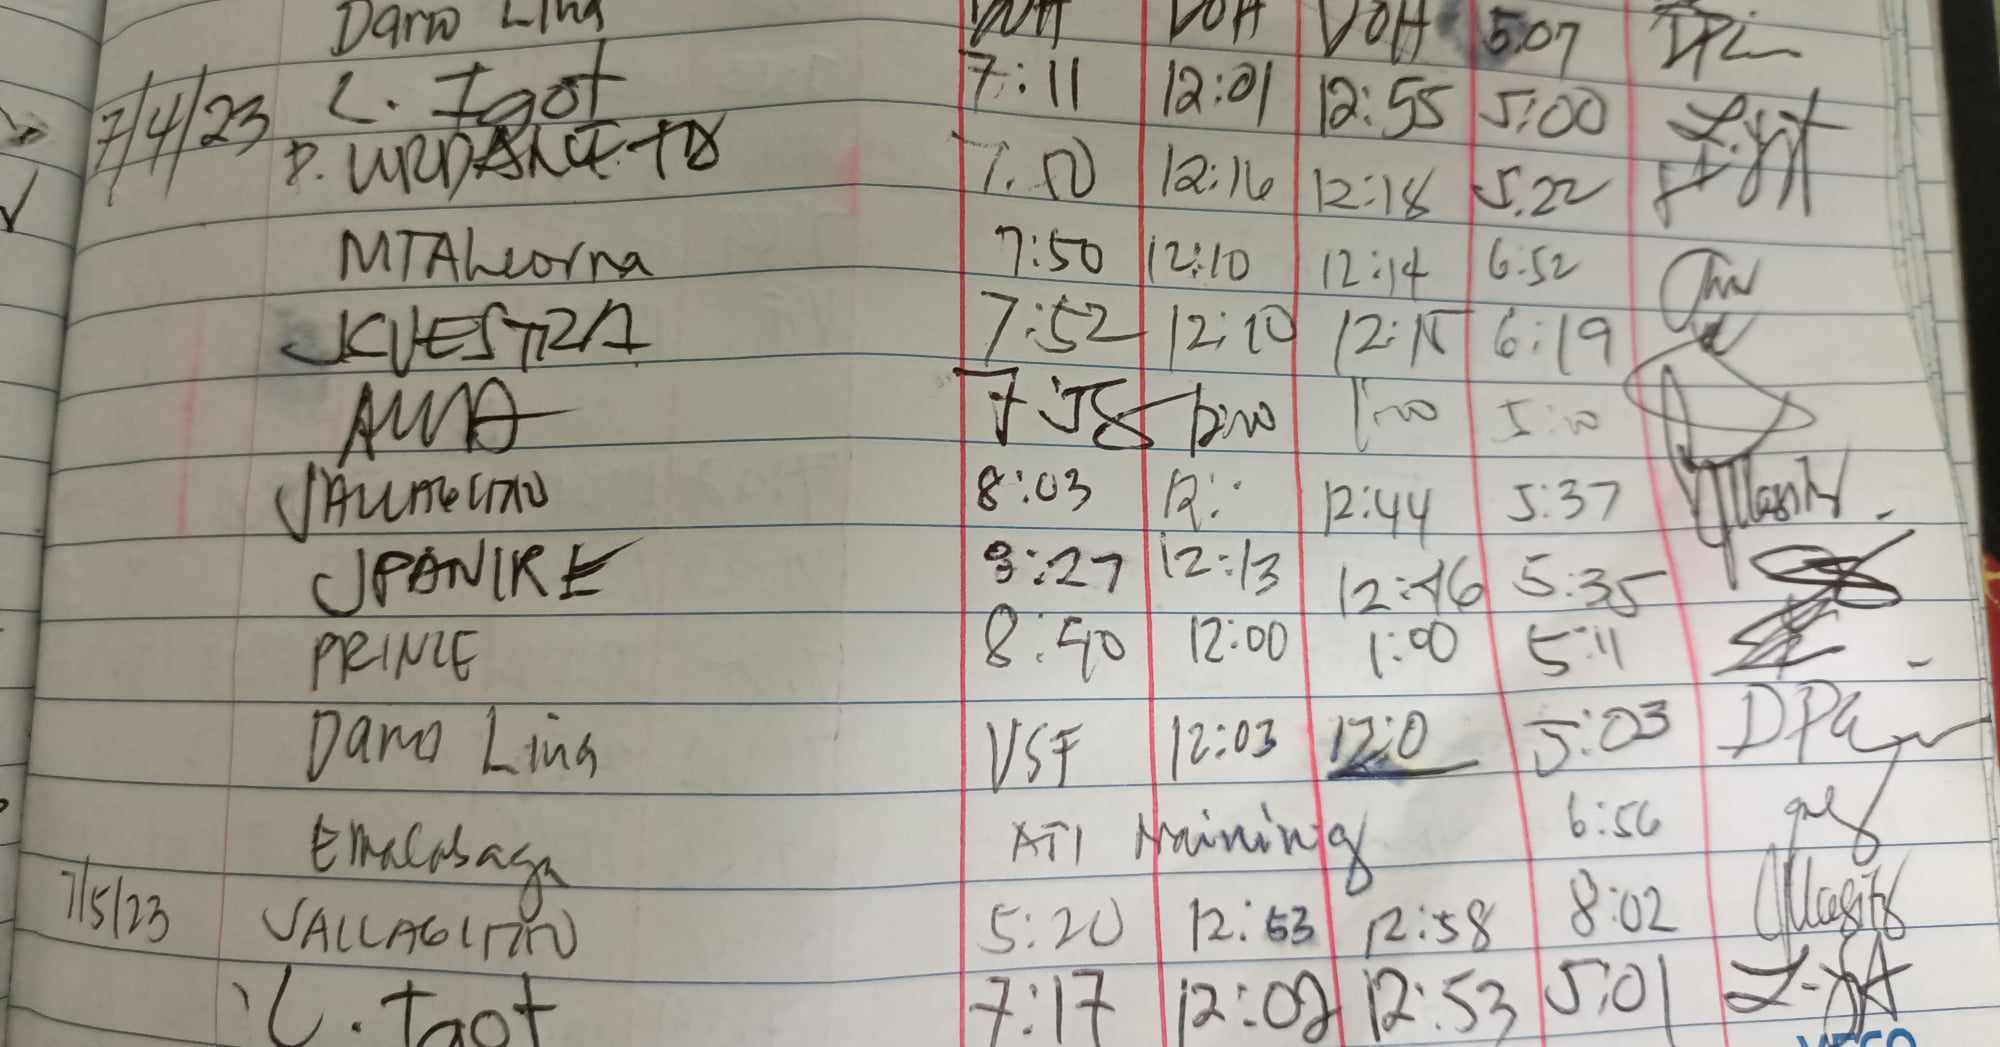 Darro Lina VOH VOH VOH 5:07
7/4/23 L. Igot 7:11 12:01 12:55 5:00 L.Igot
P. URDANETA 7:50 12:16 12:18 5:22
MTALeorna 7:50 12:10 12:14 6:52
JCUESTRA 7:52 12:10 12:15 6:19
7:58 12:00 1:00 5:10
JALLAGUITNO 8:03 12: 12:44 5:37
JPANIRE 8:27 12:13 12:46 5:35
PRINCE 8:40 12:00 1:00 5:11
Darro Lina VSF 12:03 12:0 5:03
Emalabaga ATI training 6:56
7/5/23 JALLAGUITNO 5:20 12:53 12:58 8:02
L. Igot 7:17 12:02 12:53 5:01